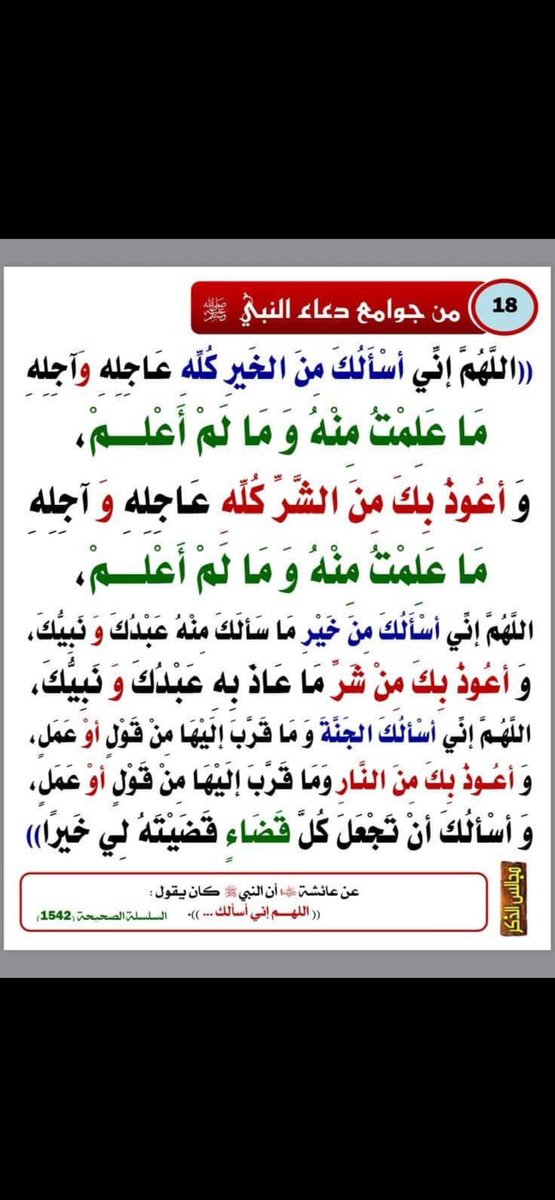 18
من جوامع دعاء النبي ﷺ
((اللَّهُمَّ إِنِّي أَسْأَلُكَ مِنَ الخَيرِ كُلِّهِ عَاجِلِهِ وَآجِلِهِ
مَا عَلِمْتُ مِنْهُ وَ مَا لَمْ أَعْلَـــمْ،
وَ أَعُوذُ بِكَ مِنَ الشَّرِّ كُلِّهِ عَاجِلِهِ وَ آجِلِهِ
مَا عَلِمْتُ مِنْهُ وَ مَا لَمْ أَعْلَـــمْ،
اللَّهُمَّ إِنِّي أَسْأَلُكَ مِنَ خَيْرِ مَا سَأَلَكَ مِنْهُ عَبْدُكَ وَ نَبِيُّكَ،
وَ أَعُوذُ بِكَ مِنْ شَرِّ مَا عَاذَ بِهِ عَبْدُكَ وَ نَبِيُّكَ،
اللَّهُمَّ إِنِّي أَسْأَلُكَ الجَنَّةَ وَ مَا قَرَّبَ إِلَيْهَا مِنْ قَوْلٍ أَوْ عَمَلٍ،
وَ أَعُـوذُ بِكَ مِنَ النَّارِ وَمَا قَرَّبَ إِلَيْهَا مِنْ قَوْلٍ أَوْ عَمَلٍ،
وَ أَسْأَلُكَ أَنْ تَجْعَلَ كُلَّ قَضَاءٍ قَضَيْتَهُ لِي خَيرًا))
مجالس الذكر
عن عائشة رضي الله عنها أن النبي ﷺ كان يقول :
(( اللهـــم إني أسألك ... )).
السلسلة الصحيحة (1542)